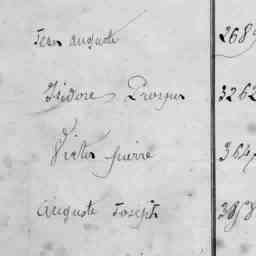 Jean auguste 268
Isidore Prosper 3262
Victor pierre 364
Auguste Joseph